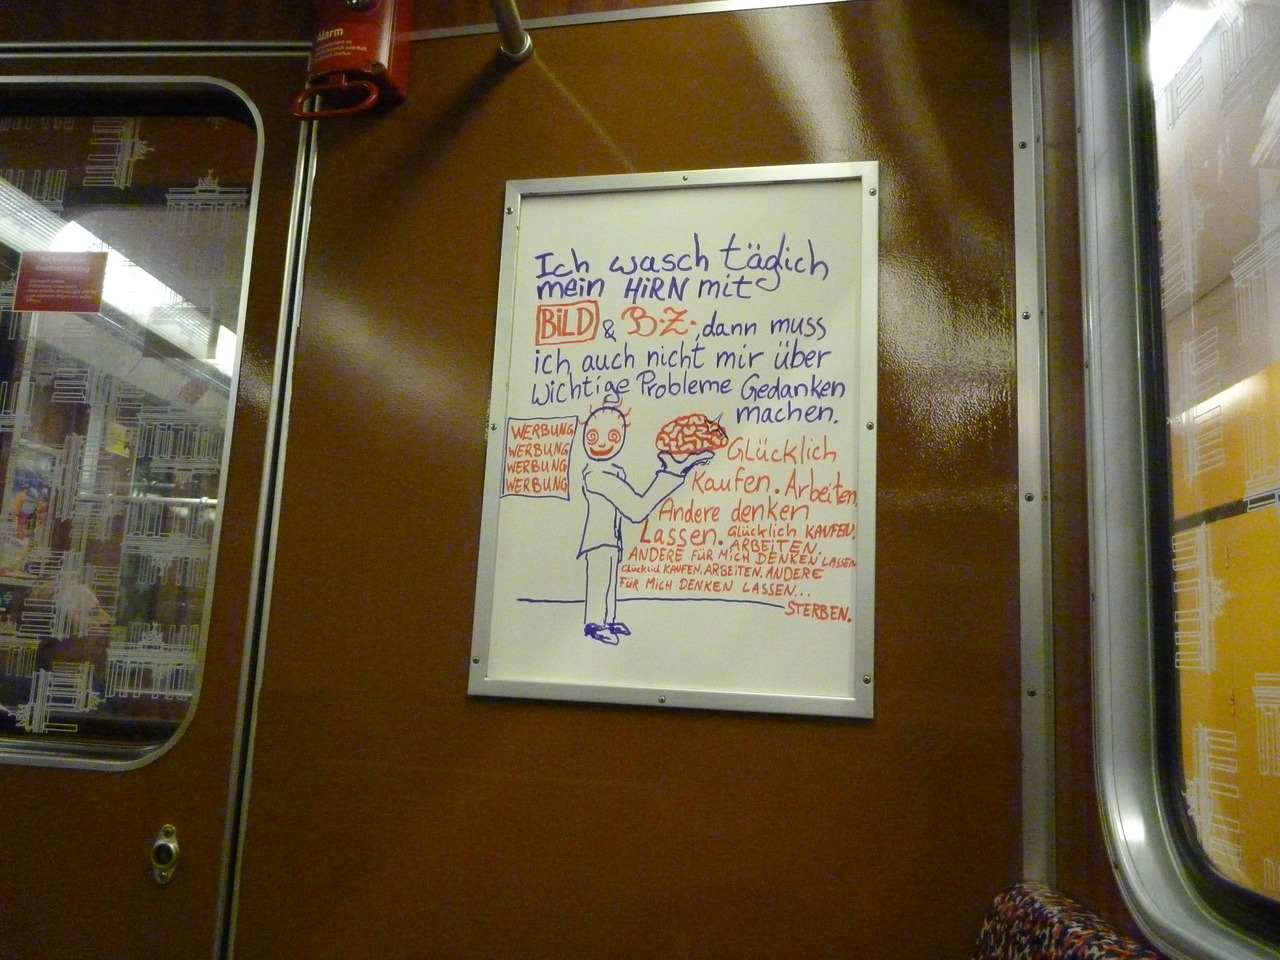 Alarm
Ich wasch täglich
mein HiRN mit
BiLD & B.Z., dann muss
ich auch nicht mir über
wichtige Probleme Gedanken
machen.
WERBUNG
WERBUNG
WERBUNG
WERBUNG
Glücklich
Kaufen. Arbeiten,
Andere denken
Lassen. Glücklich KAUFEN.
ARBEITEN.
ANDERE FÜR MICH DENKEN LASSEN
Glücklich KAUFEN. ARBEITEN. ANDERE
FÜR MICH DENKEN LASSEN...
STERBEN.